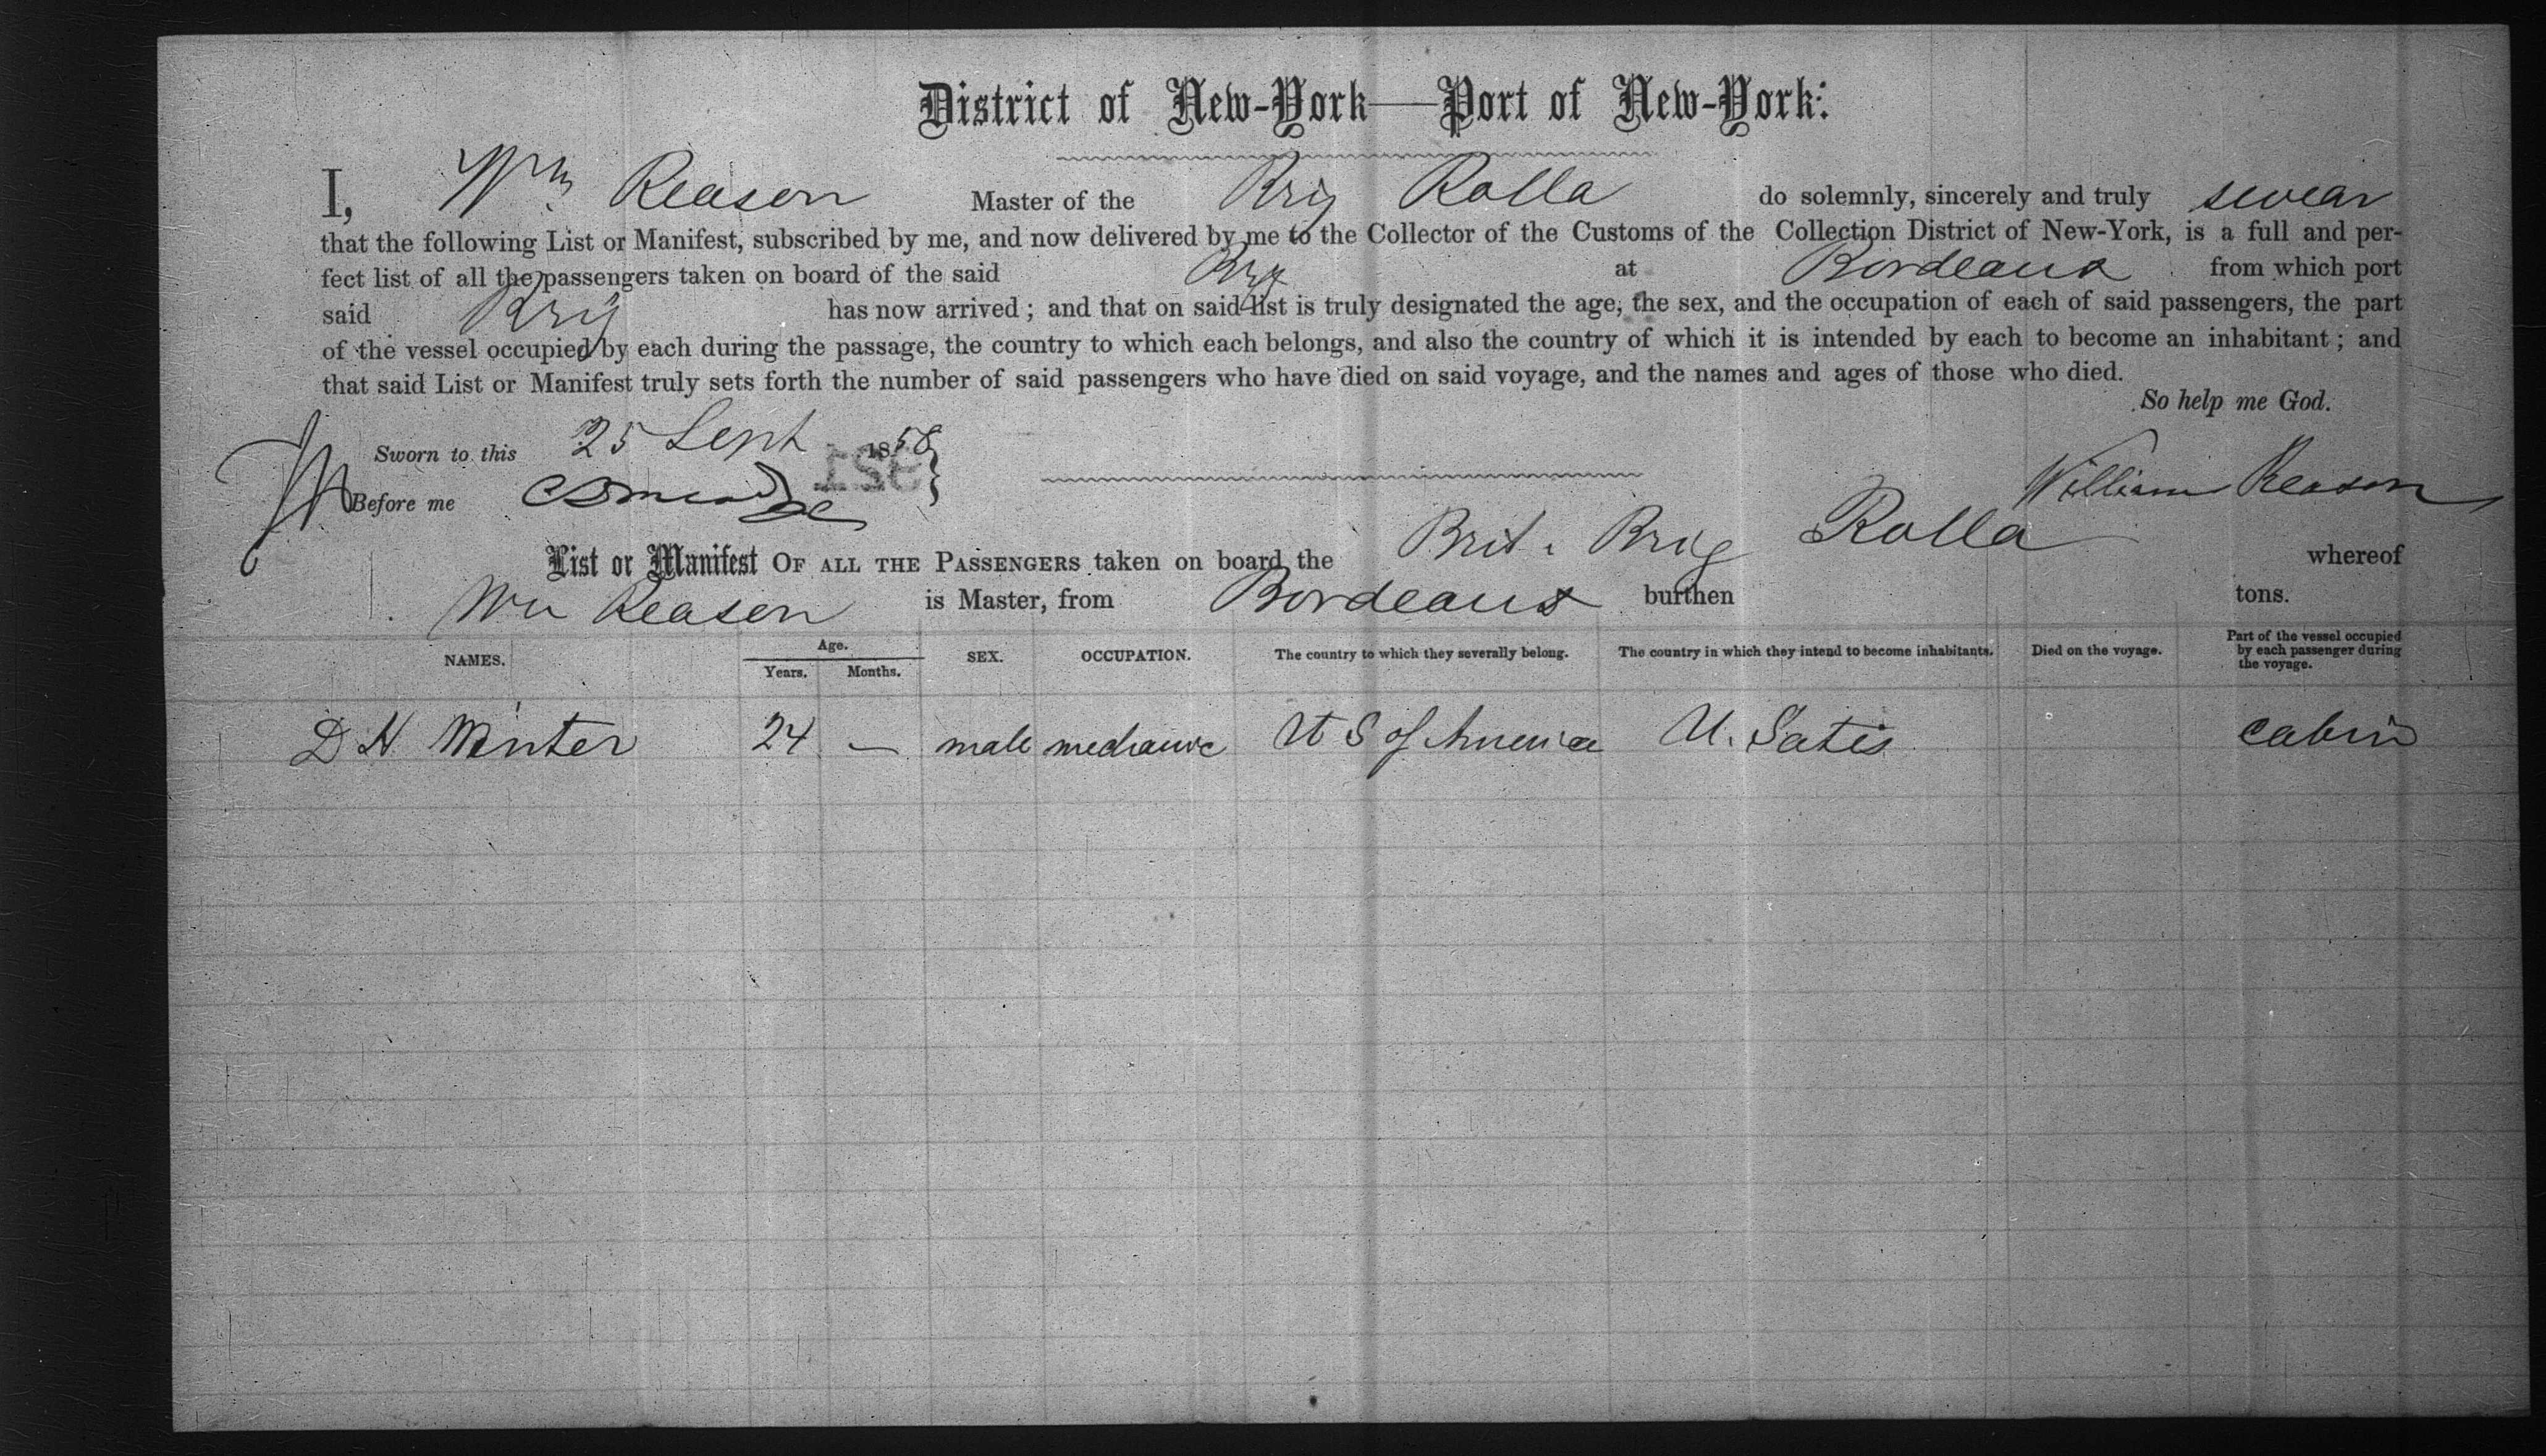 District of New-York—Port of New-York:
I, Wm Reason Master of the Brig Rolla do solemnly, sincerely and truly swear
that the following List or Manifest, subscribed by me, and now delivered by me to the Collector of the Customs of the Collection District of New-York, is a full and per-
fect list of all the passengers taken on board of the said Brig at Bordeaux from which port
said Brig has now arrived; and that on said list is truly designated the age, the sex, and the occupation of each of said passengers, the part
of the vessel occupied by each during the passage, the country to which each belongs, and also the country of which it is intended by each to become an inhabitant; and
that said List or Manifest truly sets forth the number of said passengers who have died on said voyage, and the names and ages of those who died.
So help me God.
Sworn to this 25 Sept 1858
William Reason
Before me
List or Manifest OF ALL THE PASSENGERS taken on board the Brit. Brig Rolla whereof
Wm Reason is Master, from Bordeaux burthen tons.
NAMES. Age. Years. Months. SEX. OCCUPATION. The country to which they severally belong. The country in which they intend to become inhabitants. Died on the voyage. Part of the vessel occupied by each passenger during the voyage.
D H Winter 24 — male mechanic U S of America U. Satis cabin